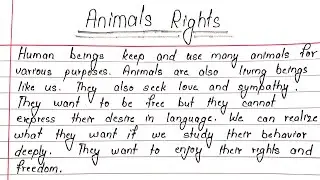 Animals Rights
Human beings keep and use many animals for
various purposes. Animals are also living beings
like us. They also seek love and sympathy.
They want to be free but they cannot
express their desire in language. We can realize
what they want if we study their behavior
deeply. They want to enjoy their rights and
freedom.